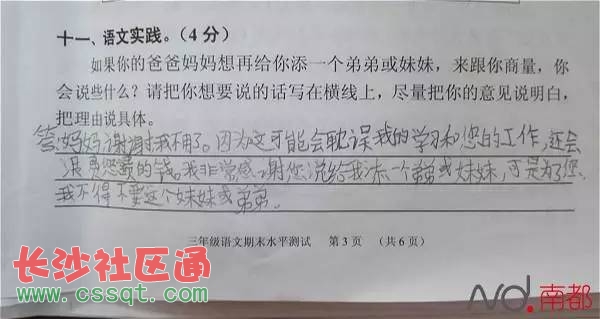 十一、语文实践。(4分)
如果你的爸爸妈妈想再给你添一个弟弟或妹妹，来跟你商量，你
会说些什么？请把你想要说的话写在横线上，尽量把你的意见说明白，
把理由说具体。
答:妈妈谢谢我不用了。因为这可能会耽误我的学习和您的工作，还会
浪费您的钱。我非常感谢您说给我添一个弟弟或妹妹，可是为了您，
我不得不要这个妹妹或弟弟。
三年级语文期末水平测试 第3页 (共6页)
长沙社区通
www.cssqt.com
nd.南都